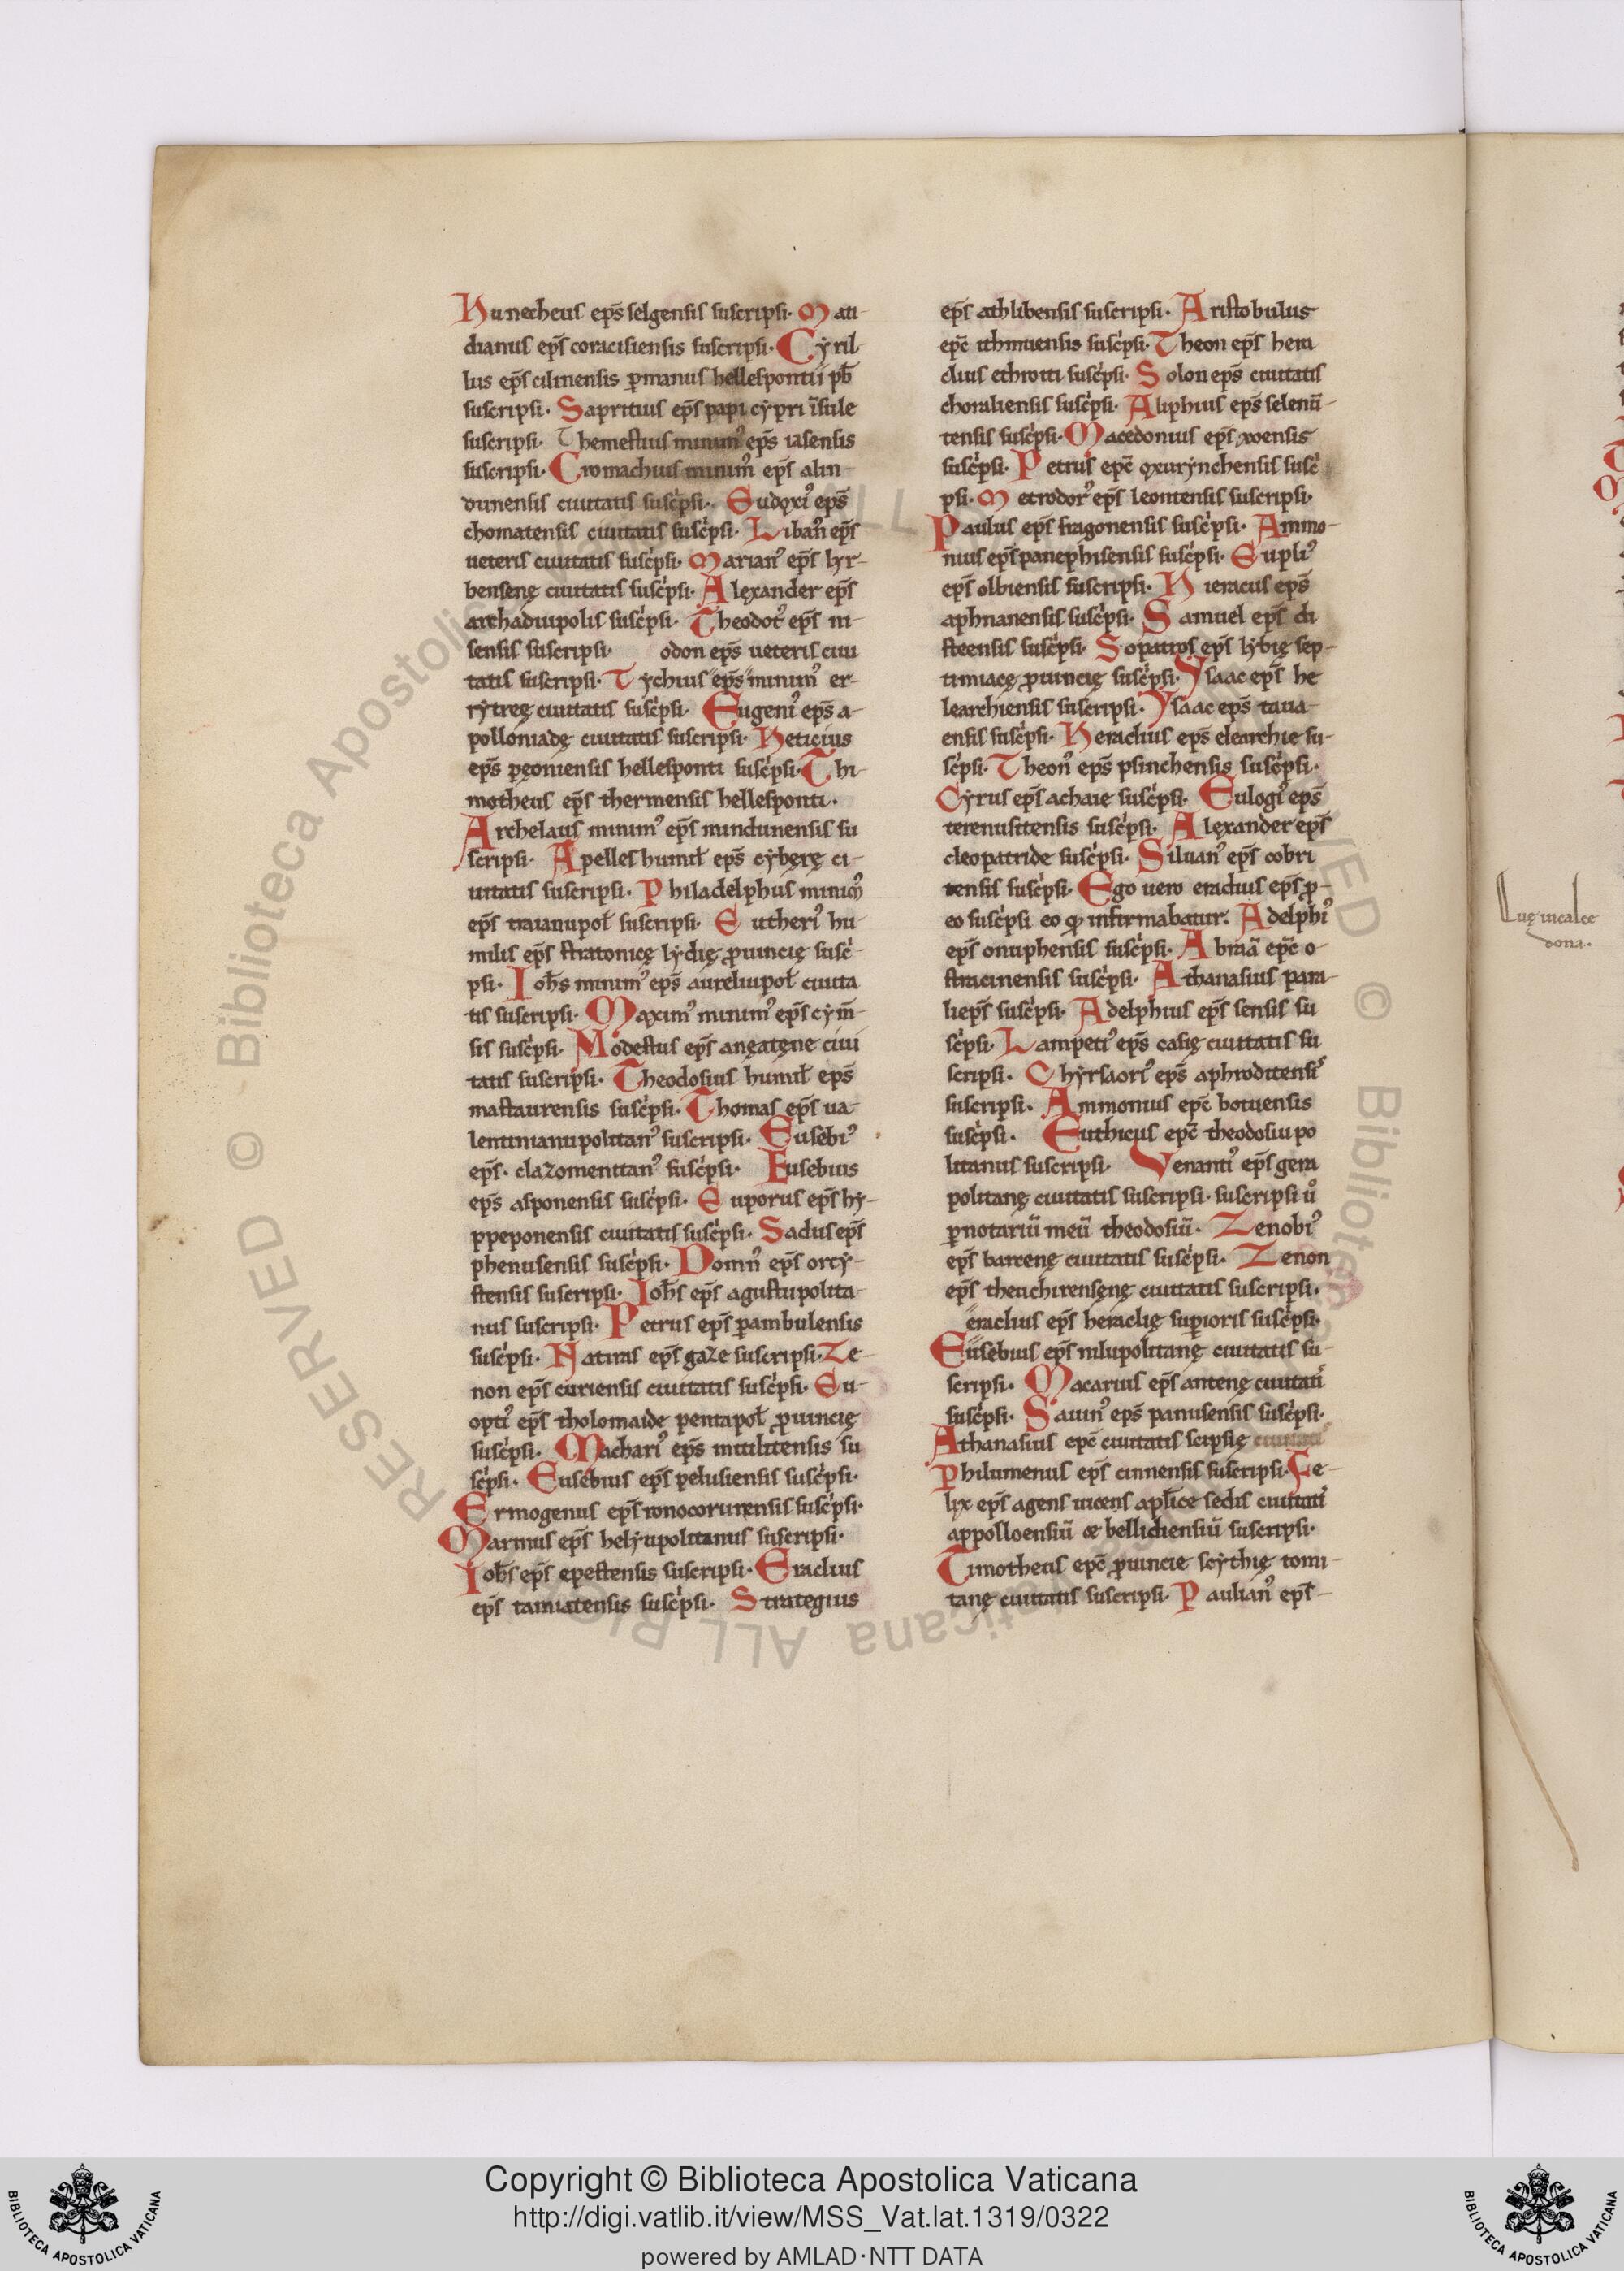 Hunecheus ep̄s selgensis suscripsi. Mati-
dianus ep̄s coracisiensis suscripsi. Cyril
lus ep̄s cilinensis ꝑmanus hellespontii p̄b
suscripsi. Sapritius ep̄s papi cypri ı̄sule
suscripsi. Themestius minim᾽ ep̄s iasensis
suscripsi. Cromachius minim᾽ ep̄s alin-
dunensis ciuitatis suśc̍psi. Eudoxi᾽ ep̄s
chomatensis ciuitatis susc̍psi. Liban᾽ ep̄s
ueteris ciuitatis susc̍psi. Marian᾽ ep̄s lyr-
bensenę ciuitatis susc̍psi. Alexander ep̄s
archadiupolis susc̍psi. Theodot᾽ ep̄s ni-
sensis suscripsi. odon ep̄s ueteris ciui
tatis suscripsi. Tychius ep̄s minim᾽ er-
rytreę ciuitatis susc̍psi. Eugeni᾽ ep̄s a-
polloniadę ciuitatis suscripsi. Heticius
ep̄s pęoniensis hellesponti susc̍psi. Thi-
motheus ep̄s thermensis hellesponti.
Archelaus minim᾽ ep̄s mindunensis su
scripsi. Apelles humił ep̄s cyberę ci-
uitatis suscripsi. Philadelphus minim᾽
ep̄s traianupoł suscripsi. Eutheri᾽ hu-
milis ep̄s stratonicę lydię ꝓuincię susc̍
psi. Ioh̄s minim᾽ ep̄s aureliupoł ciuita
tis suscripsi. Maxim᾽ minim᾽ ep̄s cym̄-
sis susc̍psi. Modestus ep̄s aneatęne ciui
tatis suscripsi. Theodosius humił ep̄s
mastaurensis susc̍psi. Thomas ep̄s ua-
lentinianupolitan᾽ suscripsi. Eusebi᾽
ep̄s. clazomenitan᾽ susc̍psi. Eusebius
ep̄s asponensis susc̍psi. Euporus ep̄s hy-
ppeponensis ciuitatis susc̍psi. Sadus ep̄s
phenusensis susc̍psi. Domn᾽ ep̄s orcy-
stensis suscripsi. Ioh̄s ep̄s agustupolita-
nus suscripsi. Petrus ep̄s ꝑambulensis
susc̍psi. Natiras ep̄s gaze suscripsi. Ze-
non ep̄s curiensis ciuitatis susc̍psi. Eu-
opti᾽ ep̄s tholomaide pentapoł ꝓuincię
susc̍psi. Machari᾽ ep̄s mitilitensis su
sc̍psi. Eusebius ep̄s pelusiensis susc̍psi.
Ermogenus ep̄s ronocorurensis susc̍psi.
Marinus ep̄s helyupolitanus suscripsi.
Ioh̄s ep̄s epestensis suscripsi. Eraclius
ep̄s tamiatensis susc̍psi. Strategius
ep̄s athlibensis suscripsi. Aristobulus
epc̄ thmuensis susc̍psi. Theon ep̄s hera
clius ethroiti susc̍psi. Solon ep̄s ciuitatis
choraliensis susc̍psi. Aliphius ep̄s selenū-
tensis susc̍psi. Macedonius ep̄s xoensis
susc̍psi. Petrus epc̄ oxurynchensis susc̍
psi. Metrodor᾽ ep̄s leontensis suscripsi.
Paulus ep̄s fragonensis susc̍psi. Ammo-
nius ep̄s panephisensis susc̍psi. Eupli᾽
ep̄s olbiensis suscripsi. Hieracus ep̄s
aphnanensis susc̍psi. Samuel ep̄s di
steensis susc̍psi. Sopatros ep̄s lybię sep-
timiacę ꝓuincię susc̍psi. Ysaac ep̄s he
learchiensis suscripsi. Ysaac ep̄s taua-
ensis susc̍psi. Heraclius ep̄s elearchie su-
sc̍psi. Theon᾽ ep̄s psinchensis susc̍psi.
Cyrus ep̄s achaie susc̍psi. Eulogi᾽ ep̄s
terenusitensis susc̍psi. Alexander ep̄s
cleopatride susc̍psi. Siluan᾽ ep̄s cobri
tensis susc̍psi. Ego uero eraclius ep̄s ꝑ-
eo susc̍psi eo ꝙ infirmabatur. Adelphi᾽
ep̄s onuphensis susc̍psi. Abraā epc̄ o-
stracinensis susc̍psi. Athanasius para-
li ep̄s susc̍psi. Adelphius ep̄s sensis su
sc̍psi. Lampeti᾽ ep̄s casię ciuitatis su
scripsi. Chyrsaori᾽ ep̄s aphroditensi᾽
suscripsi. Ammonius epc̄ botuensis
susc̍psi. Euthicus epc̄ theodosiupo
litanus suscripsi. Venanti᾽ ep̄s gera
politanę ciuitatis suscripsi. suscripsi ů
ꝑnotariū meū theodosiū. Zenobi᾽
ep̄s barcenę ciuitatis susc̍psi. Zenon
ep̄s theuchirensęnę ciuitatis suscripsi.
eraclius ep̄s heraclię suꝑioris susc̍psi.
Eusebius ep̄s nilupolitanę ciuitatis su-
scripsi. Macarius ep̄s antenę ciuitati᾽
susc̍psi. Sauin᾽ ep̄s panusensis susc̍psi.
Athanasius epc̄ ciuitatis scipsię ciuitati᾽
Philumenus ep̄s cinnensis suscripsi. Fe-
lyx ep̄s agens uicens apl̄ice sedis ciuitati᾽
appolloensiū & bellidiensiū suscripsi.
Timotheus epc̄ ꝓuincie scythię tomi-
tanę ciuitatis suscripsi. Paulian᾽ ep̄s-
Luę incalce
dona.
Copyright © Biblioteca Apostolica Vaticana
http://digi.vatlib.it/view/MSS_Vat.lat.1319/0322
powered by AMLAD·NTT DATA
BIBLIOTECA APOSTOLICA VATICANA
BIBLIOTECA APOSTOLICA VATICANA